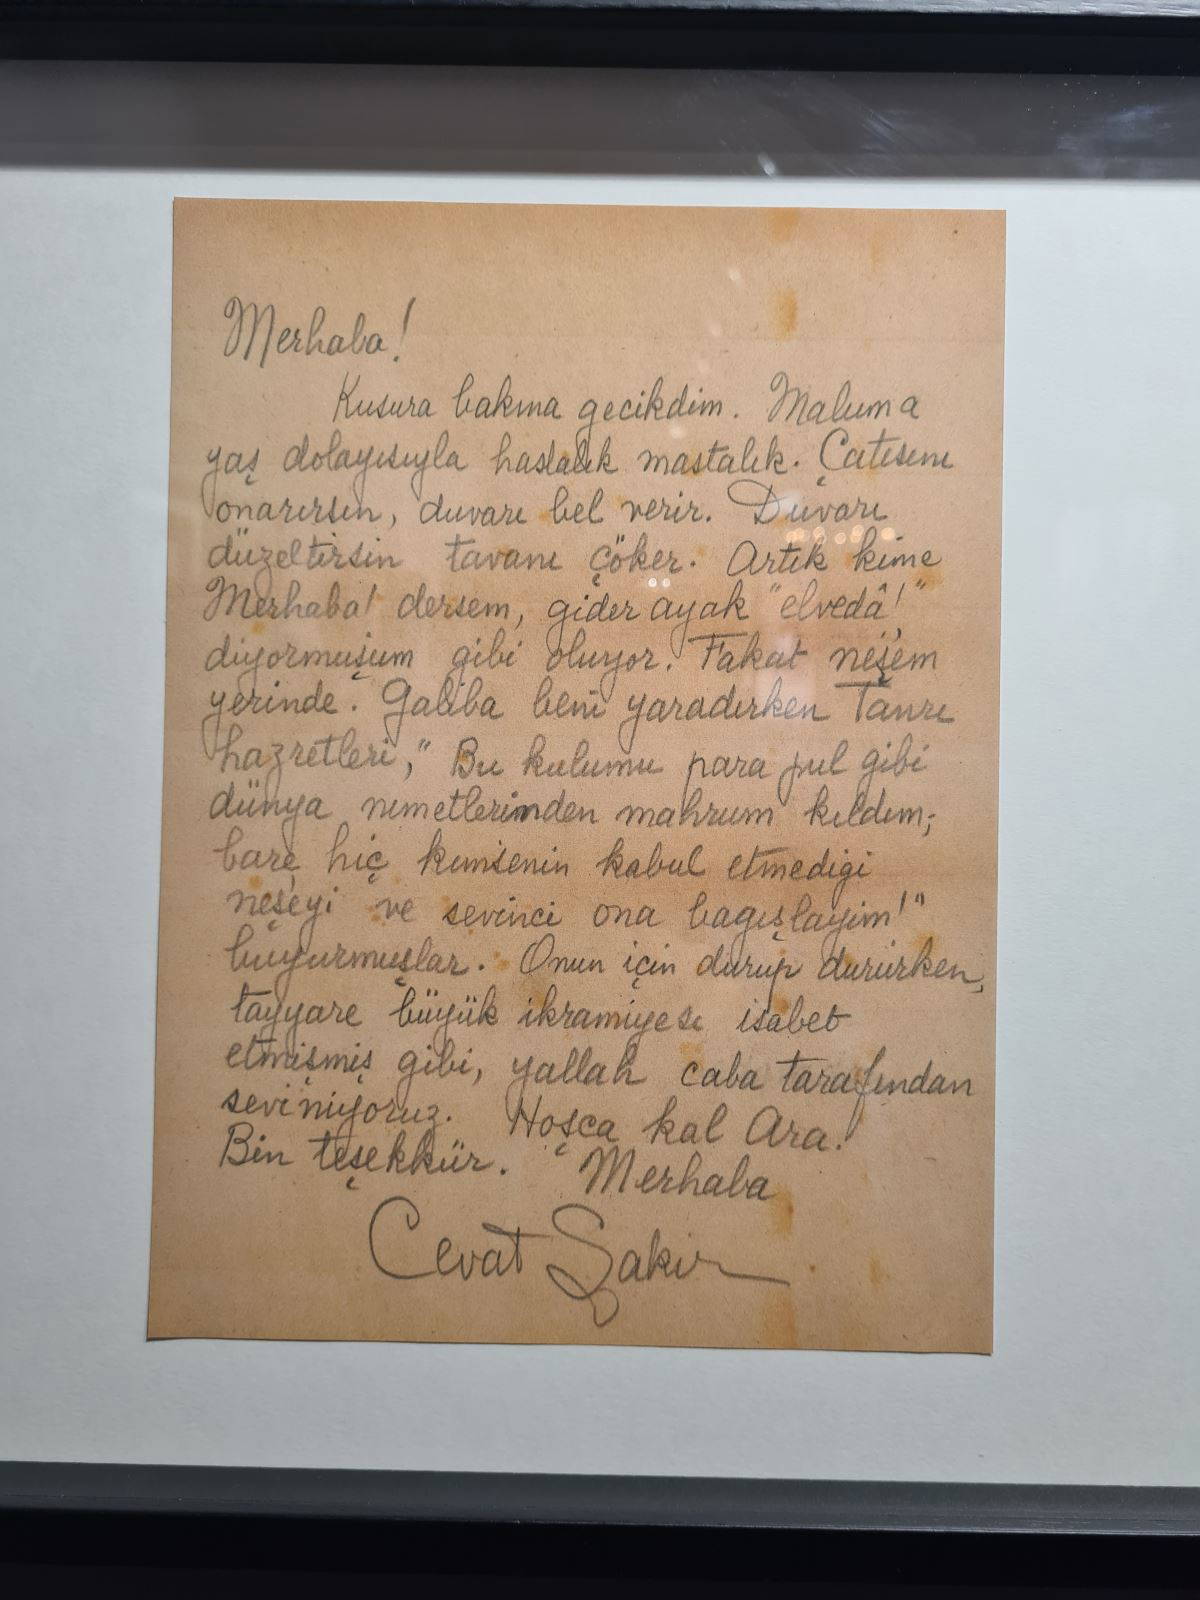 Merhaba!
Kusura bakma gecikdim. Maluma
yaş dolayısıyla hastalık mastalık. Çatısını
onarırsın, duvarı bel verir. Duvarı
düzeltirsin tavanı çöker. Artık kime
Merhaba! dersem, gider ayak "elvedâ!"
diyormuşum gibi oluyor. Fakat neşem
yerinde. Galiba beni yaradırken Tanrı
hazretleri, "Bu kulumu para pul gibi
dünya nimetlerinden mahrum kıldım;
bare hiç kimsenin kabul etmedigi
neşeyi ve sevinci ona bagışlayim!"
buyurmuşlar. Onun için durup dururken,
tayyare büyük ikramiyesi isabet
etmişmiş gibi, yallah caba tarafından
seviniyoruz. Hoşca kal Ara!
Bin teşekkür. Merhaba
Cevat Şakir